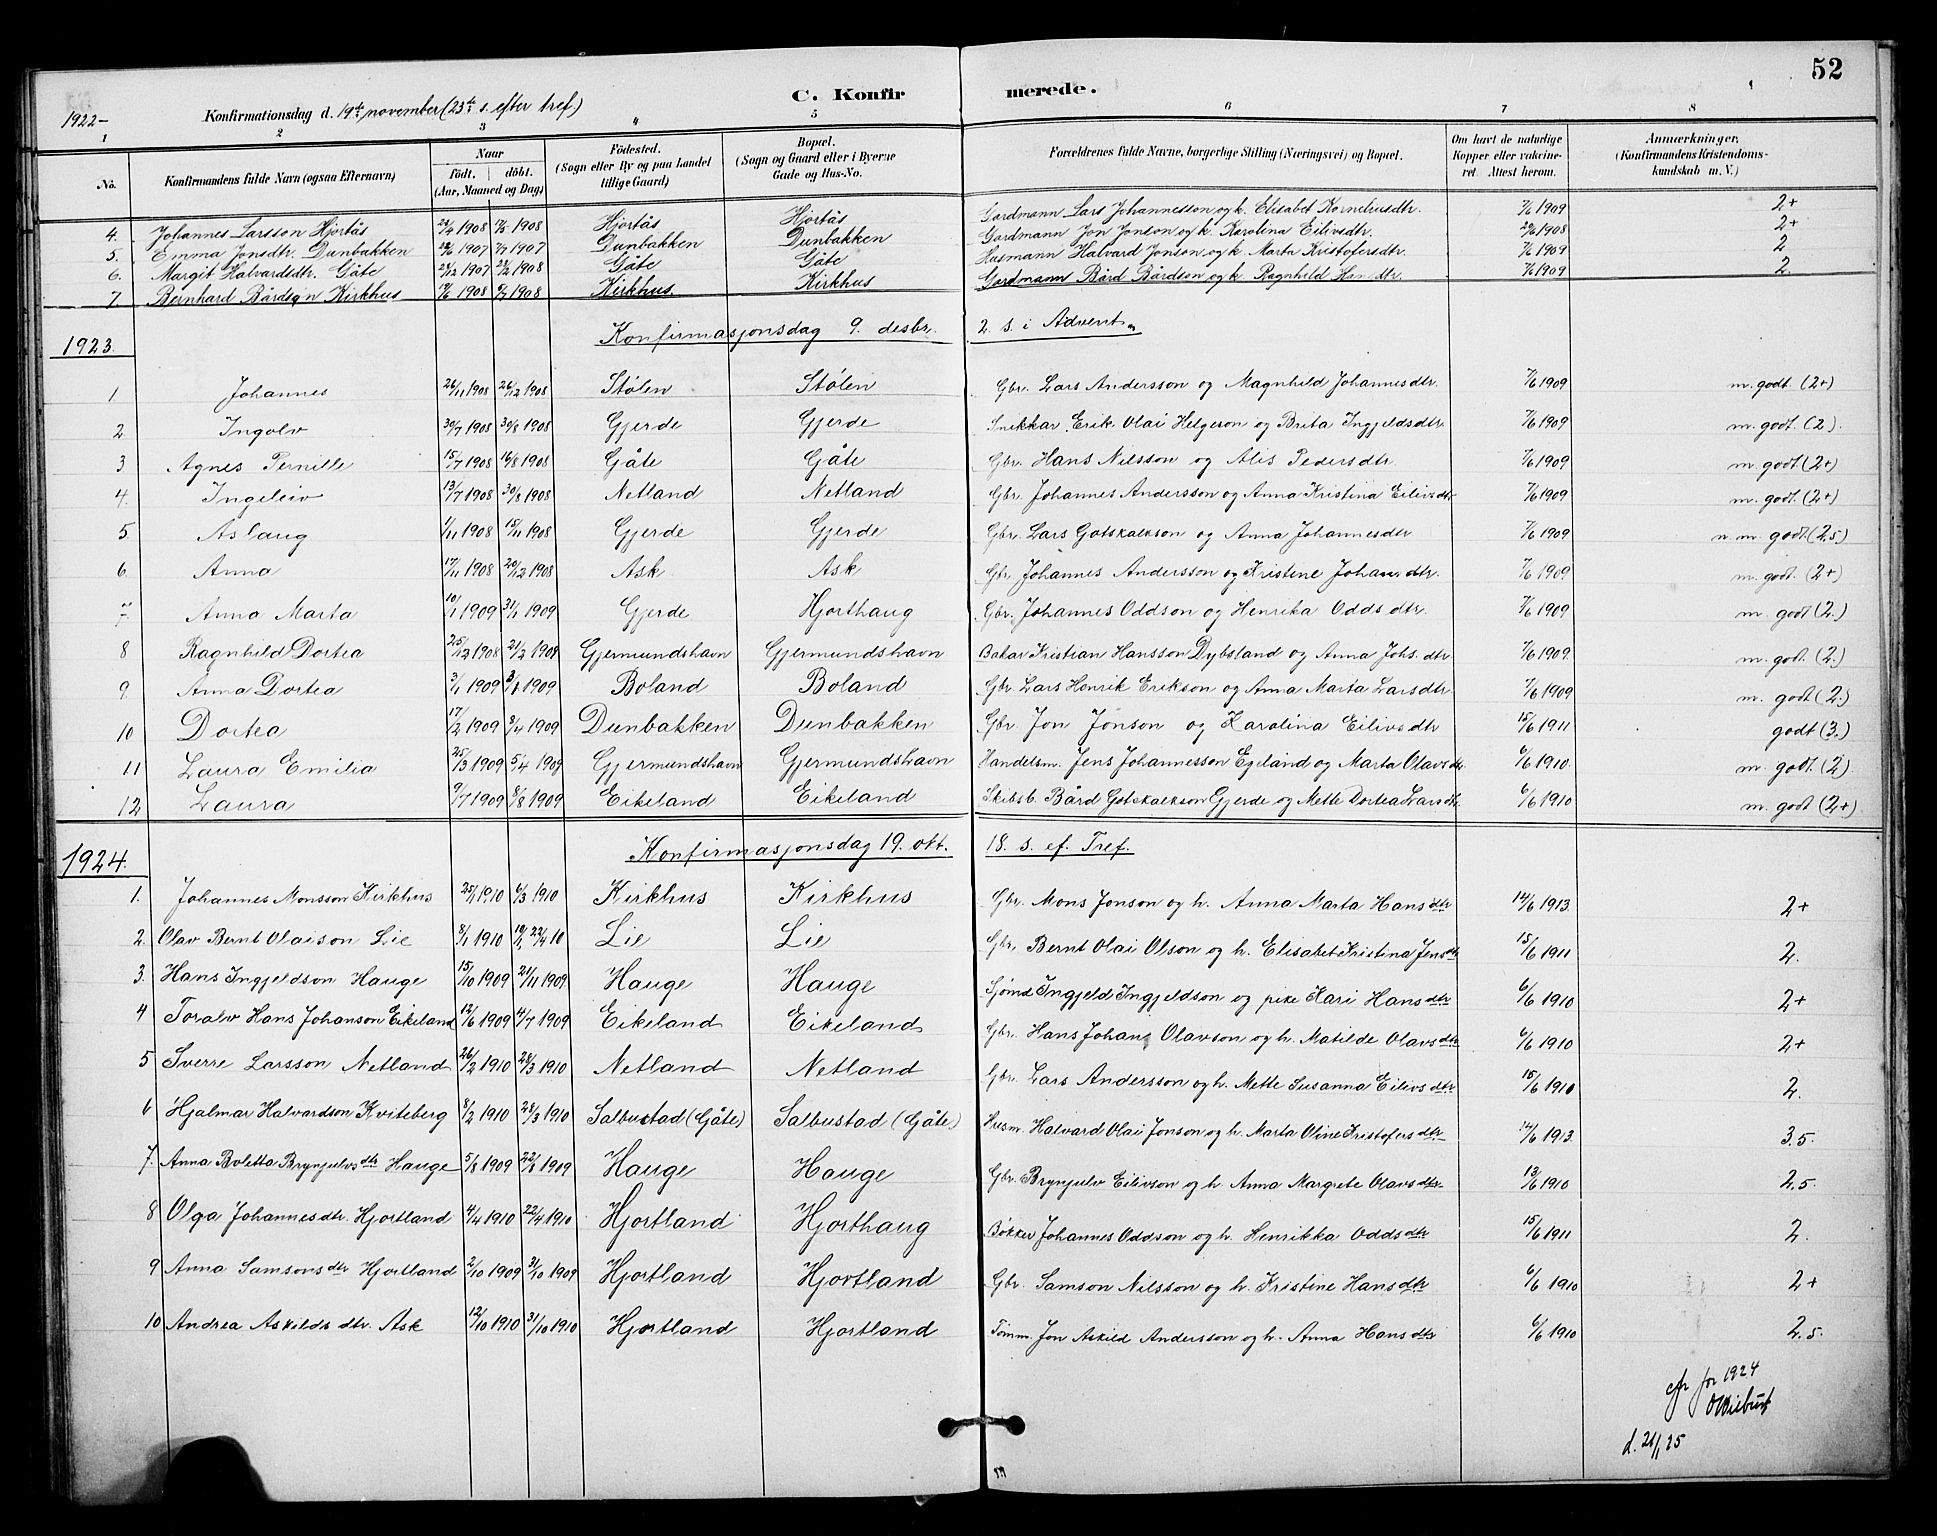 52
1922-
Konfirmationsdag d. 19de november (23de s. efter tref)
C. Konfirmerede.
1 2 3 4 5 6 7 8
No. Konfirmandens fulde Navn (ogsaa Efternavn) Naar födt. döbt. (Aar, Maaned og Dag) Födested. (Sogn eller By og paa Landet tillige Gaard) Bopæl. (Sogn og Gaard eller i Byerne Gade og Hus-No. Forældrenes fulde Navne, borgerlige Stilling (Næringsvei) og Bopæl. Om havt de naturlige Kopper eller vakcineret. Attest herom. Anmærkninger, (Konfirmandens Kristendomskundskab m. V.)
4. Johannes Larsson Hjortås 1908 1908 Hjortås Hjortås Gardmann Lars Johannesson og k. Elisabet Korneliusdtr. 7/6 1909 2+
5. Emma Jonsdtr. Dunbakken 1907 1907 Dunbakken Dunbakken Gardmann Jon Jonson og k. Karolina Eilivsdtr. 1908 2+
6. Margit Halvardsdtr. Gåte 1907 1908 Gåte Gåte Husmann Halvard Jonson og k. Marta Kristofersdtr. 7/6 1909 2
7 Bernhard Bårdson Kirkhus 1908 1908 Kirkhus Kirkhus Gardmann Bård Bårdson og k. Ragnhild Hansdtr. 7/6 1909 2.
1923. Konfirmasjonsdag 9. desbr. 2. s. i Advent
1 Johannes 26/11 1908 26/12 1908 Stølen Stølen Gbr. Lars Andersson og Magnhild Johannesdtr. 7/6 1909 m. godt. (2+)
2 Ingolv 30/7 1908 30/8 1908 Gjerde Gjerde Snikkar Erik Olai Helgeson og Brita Ingjeldsdtr. 7/6 1909 m. godt. (2).
3 Agnes Pernille 15/7 1908 16/8 1908 Gåte Gåte Gbr. Hans Nilsson og Alis Pedersdtr. 7/6 1909 m. godt (2+)
4. Ingeleiv 13/7 1908 30/8 1908 Netland Netland Gbr. Johannes Andersson og Anna Kristina Eilivsdtr. 7/6 1909 m. godt. (2+)
5. Aslaug 1/11 1908 15/11 1908 Gjerde Gjerde Gbr. Lars Gotskalkson og Anna Johannesdtr 7/6 1909 n. m. godt. (2,5)
6. Anna 17/11 1908 20/12 1908 Ask Ask Gbr Johannes Andersson og Kristine Johans dtr. 7/6 1909 m. godt. (2+)
7. Anna Marta 10/1 1909 31/1 1909 Gjerde Hjorthaug Gbr. Johannes Oddson og Henrika Odds dtr. 7/6 1909 m. godt (2.)
8 Ragnhild Dortea 25/12 1908 21/2 1909 Gjermundshavn Gjermundshavn Bakar Kristian Hansson Dybsland og Anna Johs. dtr 7/6 1909. m. godt. (2.)
9. Anna Dortea 3/1 1909 1909 Boland Boland Gbr Lars Henrik Erikson og Anna Marta Larsdtr 7/6 1909 m. godt (2.)
10 Dortea 17/2 1909 3/4 1909 Dunbakken Dunbakken Gbr. Jon Jonson og Karolina Eilivsdtr 15/6 1911 godt (3.)
11 Laura Emilia 25/3 1909 5/4 1909 Gjermundshavn Gjermundshavn Handelsm. Jens Johannesson Egeland og Marta Olavsdtr. 6/6 1910. m. godt. (2)
12 Laura 9/7 1909 8/8 1909 Eikeland Eikeland Skibsb. Bård Gotskalkson Gjerde og Mette Dortea Larsdtr. 6/6 1910 m. godt (2+)
1924. Konfirmasjonsdag 19. okt. 18. s. ef. Tref.
1. Johannes Monsson Kirkhus 25/1 1910 6/3 1910 Kirkhus Kirkhus Gbr. Mons Jonson og h. Anna Marta Hansdtr 14/6 1913. 2+
2. Olav Bernt Olaison Lie 8/1 1910 22/4 10 Lie Lie Gbr. Bernt Olai Olson og h. Elisabet Kristina Jensdtr 15/6 1911 2.
3. Hans Ingjeldson Hauge 15/10 1909 21/11 1909 Hauge Hauge Sjømd Ingjeld Ingjeldson og pike Kari Hansdtr 6/6 1910 2+
4 Toralv Hans Johanson Eikeland 12/6 1909 4/7 1909 Eikeland Eikeland Gbr. Hans Johan Olavson og h. Matilde Olavsdtr 6/6 1910 2+
5 Sverre Larsson Netland 26/2 1910 28/3 1910 Netland Netland Gbr. Lars Andersson og h. Mette Susanna Eilivsdtr 15/6 1910 2.
6 Hjalmar Halvardson Kviteberg 8/2 1910 28/3 1910 Salbustad (Gåte) Salbustad (Gåte) Husm. Halvard Olai Jonson og h. Marta Oline Kristofersdtr. 14/6 1913 3,5.
7. Anna Boletta Brynjulvsdtr Hauge 5/8 1909 22/8 1909 Hauge Hauge Gbr. Brynjulv Eilivson og h. Anna Margrete Olavsdtr. 13/6 1910 2,5.
8 Olga Johannesdtr. Hjortland 4/4 1910 22/4 1910 Hjortland Hjorthaug Bøkker Johannes Oddson og h. Henrikka Oddsdtr 15/6 1911 2.
9 Anna Samsonsdtr Hjortland 2/10 1909 31/10 1909 Hjortland Hjortland Gbr. Samson Nilsson og h. Kristine Hansdtr 6/6 1910 2+
10 Andrea Askilds dtr. Ask 12/10 1910 31/10 1910 Hjortland Hjortland Tømm. Jon Askild Andersson og h. Anna Hansdtr 6/6 1910 2,5.
for 1924
d. 21/1 25